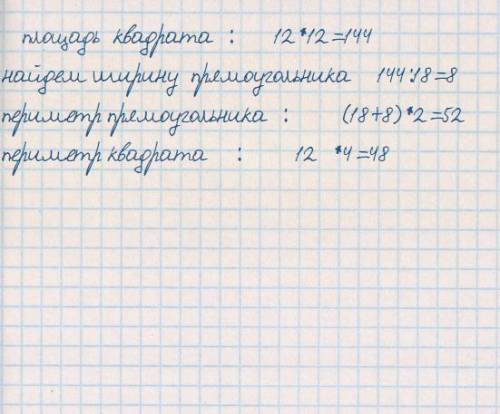 площадь квадрата : 12*12=144
найдем ширину прямоугольника 144:18=8
периметр прямоугольника : (18+8)*2=52
периметр квадрата : 12 *4=48